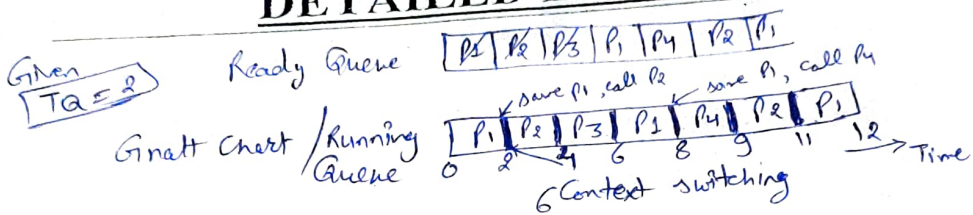 Given
TQ = 2
Ready Queue P1 P2 P3 P1 P4 P2 P1
save P1, call P2
save P1, call P4
Gnatt Chart / Running Queue P1 P2 P3 P1 P4 P2 P1
0 2 4 6 8 9 11 12 Time
6 Context switching